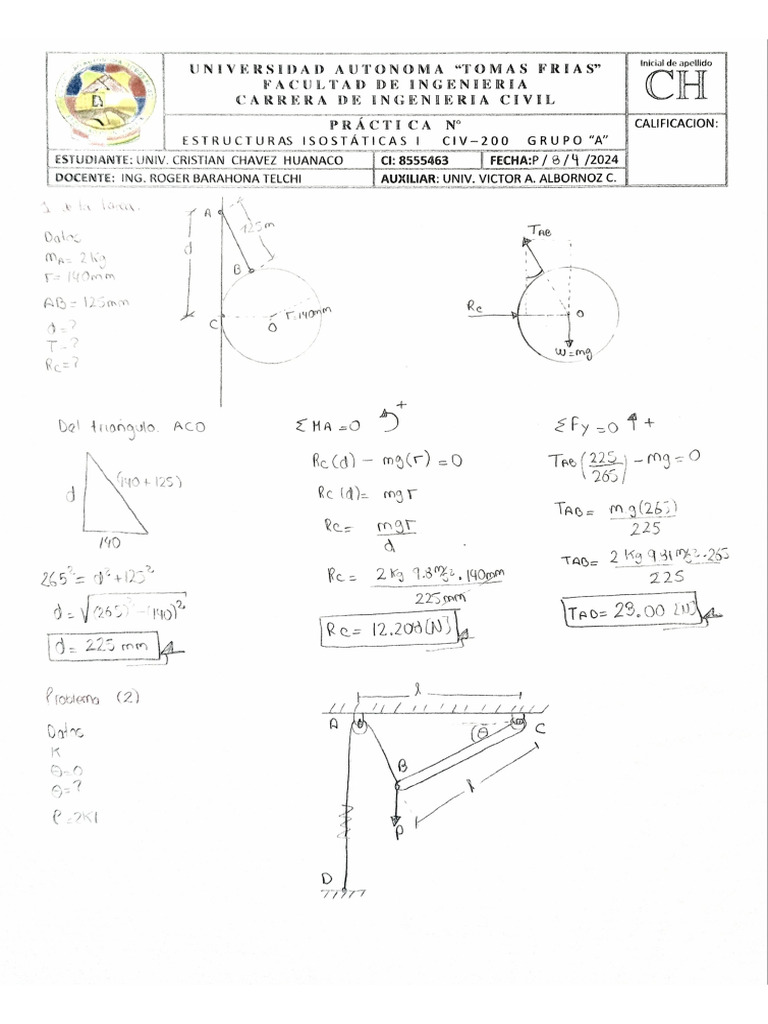 UNIVERSIDAD AUTONOMA “TOMAS FRIAS”
FACULTAD DE INGENIERIA
CARRERA DE INGENIERIA CIVIL
PRÁCTICA Nº
ESTRUCTURAS ISOSTÁTICAS I CIV-200 GRUPO “A”
Inicial de apellido
CH
CALIFICACION:
ESTUDIANTE: UNIV. CRISTIAN CHAVEZ HUANACO CI: 8555463 FECHA:P/8/4/2024
DOCENTE: ING. ROGER BARAHONA TELCHI AUXILIAR: UNIV. VICTOR A. ALBORNOZ C.
Datos
mA= 2 kg
r= 140mm
AB= 125mm
d=?
T=?
Rc=?
A
125m
d
B
C
O
r=140mm
TAB
Rc
O
W=mg
Del triangulo ACO
d
(140+125)
140
265²= d²+125²
d=√(265)²-(140)²
d= 225 mm
ΣMA=0 +
Rc(d) - mg(r)=0
Rc(d)= mgr
Rc= mgr/d
Rc= 2kg 9.8 m/s². 140mm / 225mm
Rc= 12.208[N]
ΣFy=0 +
TAB(225/265) - mg=0
TAB= m.g(265)/225
TAB= 2 Kg 9.81 m/s². 265 / 225
TAB= 23.00 [N]
Problema (2)
Datos
K
θ=0
θ=?
P=2Kl
l
A
θ
C
B
l
P
D